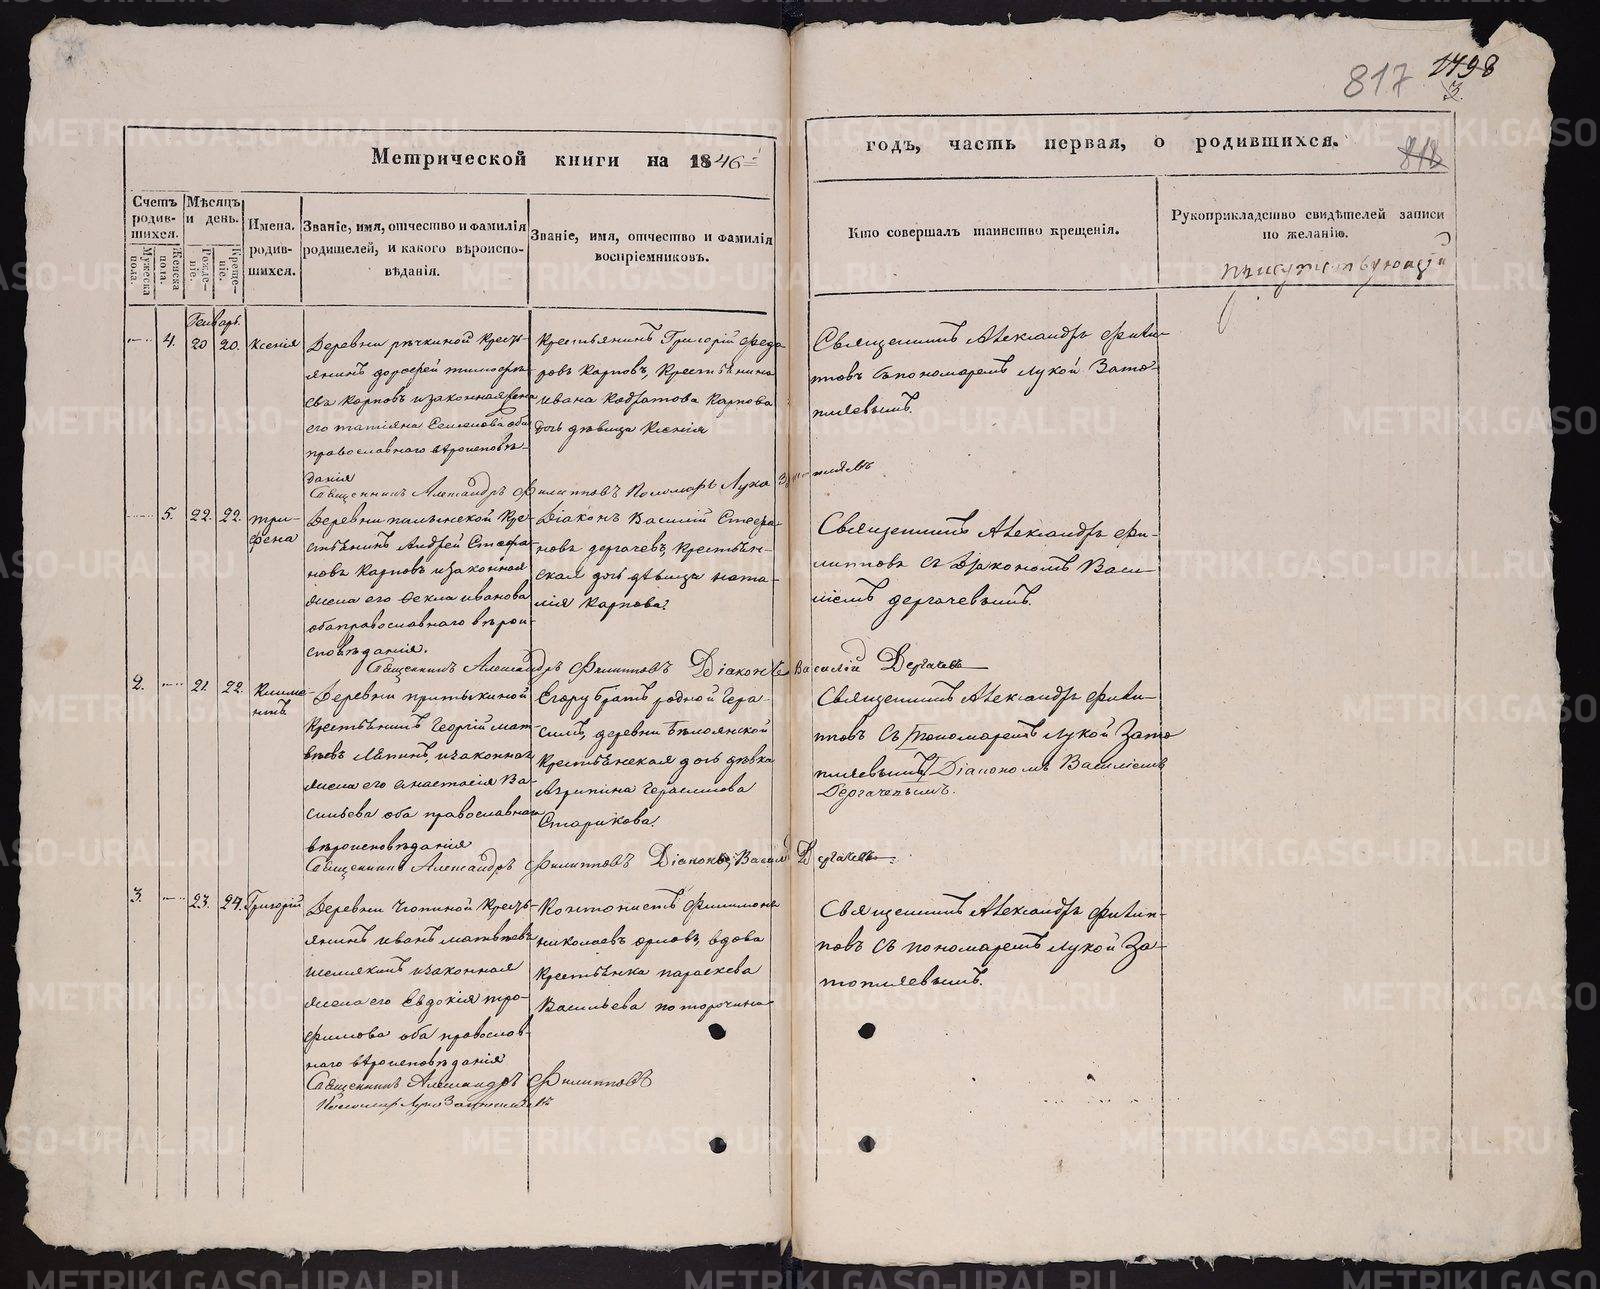 817 1798
3.
Метрической книги на 1846
годъ, часть первая, о родившихся.
818
Счетъ родив-шихся.
Мужеска пола.
Женска пола.
Мѣсяцъ и день.
Рожде-ніе.
Креще-ніе.
Имена. родив-шихся.
Званіе, имя, отчество и фамилія
родителей, и какого вѣроиспо-
вѣданія.
Званіе, имя, отчество и фамилія
воспріемниковъ.
Кто совершалъ таинство крещенія.
Рукоприкладство свидѣтелей записи
по желанію.
Генварь.
4. 20 20. Ксенія
Деревни рѣчкиной Кресть-
янинъ дорофей тимофѣ-
евъ Карповъ и законная жена
его татіяна Семенова оба
православнаго вѣроисповѣ-
данія
Крестьянинъ Григорій федо
ровъ Карповъ, Крестьянина
ивана Карпова
дочь дѣвица Ксенія
Священникъ Александръ Филип
повъ съ пономаремъ Лукой Зато-
пляевымъ.
Священникъ Александръ Филипповъ Пономарь Лука Затопляевъ
5. 22. 22. три-
фена
Деревни Кре-
стьянинъ Андрей Стефа-
новъ Карповъ и законная
жена его Фекла иванова
оба православнаго вѣрои-
сповѣданія.
Діаконъ Василій Стефа-
новъ дергачевъ, Крестьян-
ская дочь дѣвица ната-
лія Карпова.
Священникъ Александръ Фи-
липповъ съ Діакономъ Васи-
ліемъ дергачевымъ.
Священникъ Александръ Филипповъ Діаконъ Василій Дергачевъ
2. 21. 22. Климе-
нтъ
Деревни притыкиной
Крестьянинъ Георгій мат-
вѣевъ Лапинъ, и законная
жена его Анастасія Ва-
сильева оба православнаго
вѣроисповѣданія
Егору братъ родной Гера-
симъ, деревни бѣлоянской
Крестьянская дочь дѣвка
Агрипина Герасимова
Старикова.
Священникъ Александръ Филип-
повъ съ Пономаремъ Лукой Зато
пляевымъ, Діакономъ Василіемъ
Дергачевымъ.
Священникъ Александръ Филипповъ Діаконъ Василій Дергачевъ
3. 23. 24. Григорій
Деревни Чопиной Кресть-
янинъ иванъ матвѣевъ
Шелякинъ и законная
жена его Евдокія тро-
фимова оба православ-
наго вѣроисповѣданія
Кантонистъ Филимонъ
николаевъ орловъ, вдова
Крестьянка параскева
Васильева поторочина
Священникъ Александръ Филип-
повъ съ пономаремъ Лукой За-
топляевымъ.
Священникъ Александръ Филипповъ
Пономарь Лука Затопляевъ